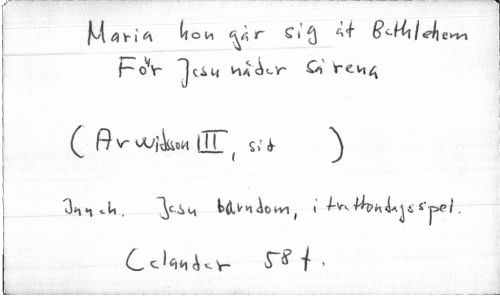 Maria hon går sig åt Bethlehem
För Jesu nåder så rena
(Arwidsson III, sid )
Inneh. Jesu barndom, i trettondagsspel.
Celander 58 f.